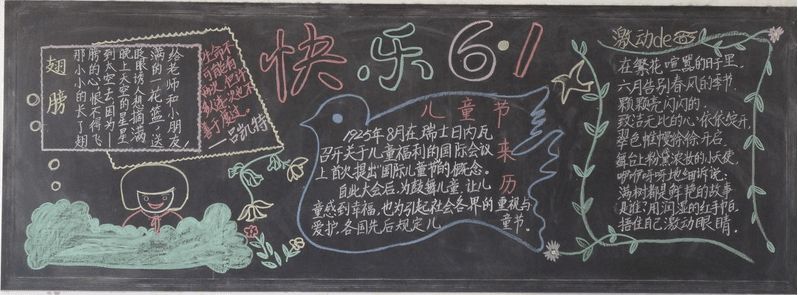 快乐6·1
翅膀
那小小的长了翅
膀的心,恨不得飞
到太空去因为一
晚上天空的星星
眨眼诱人想摘满
满的一花篮,送
给老师和小朋友,
生命不
可能有
善于度过。
—吕凯特
儿童节来历
1925年8月在瑞士日内瓦
召开关于儿童福利的国际会议
上首次提出国际儿童节的概念。
自此大会后,为鼓舞儿童,让儿
童感到幸福,也为引起社会各界的重视与
爱护,各国先后规定儿童节。
激动de
在繁花喧嚣的日子里,
六月告别春风的季节
颗颗亮闪闪的,
致洁无比的心,依依绽开,
翠色帷幔徐徐开启,
舞台上粉黛浓妆的小天使,
咿咿呀呀地细诉说:
满树都是鲜艳的故事
是谁:用润湿的红手帕,
捂住自己激动眼睛.